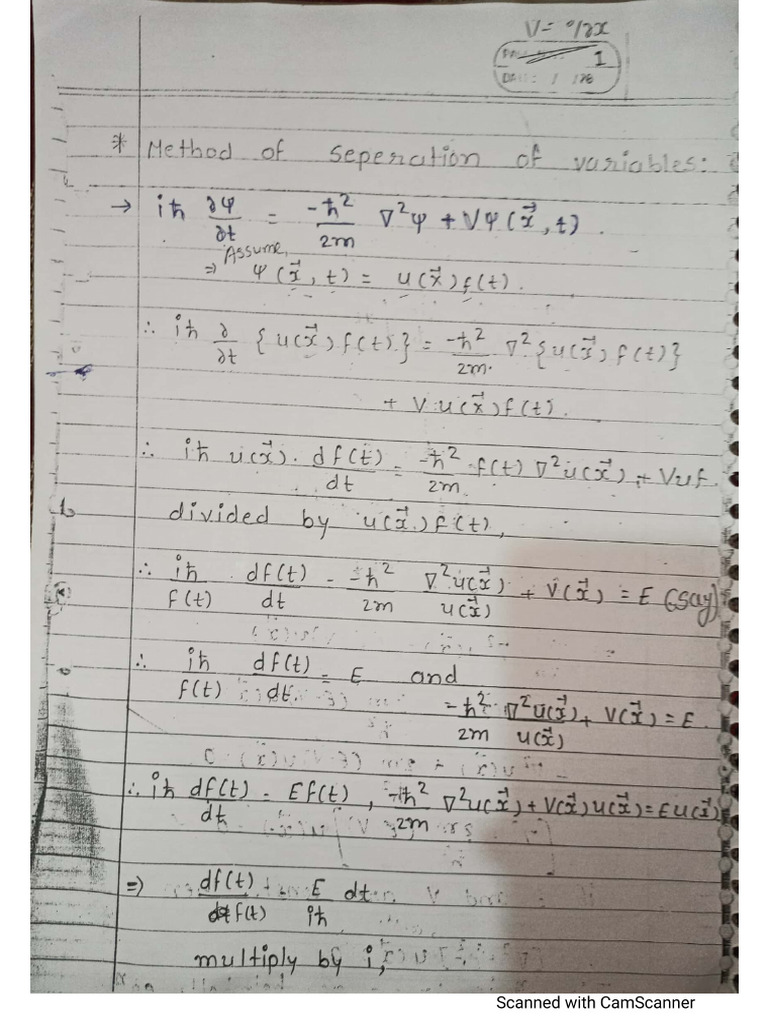 V = ∂/∂x
1
* Method of seperation of variables:
→ iħ ∂ψ/∂t = -ħ²/2m ∇²ψ + Vψ(x⃗, t).
Assume,
⇒ ψ(x⃗, t) = u(x⃗)f(t).
∴ iħ ∂/∂t {u(x⃗)f(t)} = -ħ²/2m ∇²{u(x⃗)f(t)}
+ V u(x⃗)f(t).
∴ iħ u(x⃗). df(t)/dt = -ħ²/2m f(t) ∇²u(x⃗) + Vuf.
divided by u(x⃗)f(t),
∴ iħ/f(t) df(t)/dt = -ħ²/2m ∇²u(x⃗)/u(x⃗) + V(x⃗) = E (say)
∴ iħ/f(t) df(t)/dt = E and
-ħ²/2m ∇²u(x⃗)/u(x⃗) + V(x⃗) = E.
∴ iħ df(t)/dt = Ef(t), -ħ²/2m ∇²u(x⃗) + V(x⃗)u(x⃗) = Eu(x⃗)
⇒ df(t)/f(t) = E/iħ dt
multiply by i,
Scanned with CamScanner